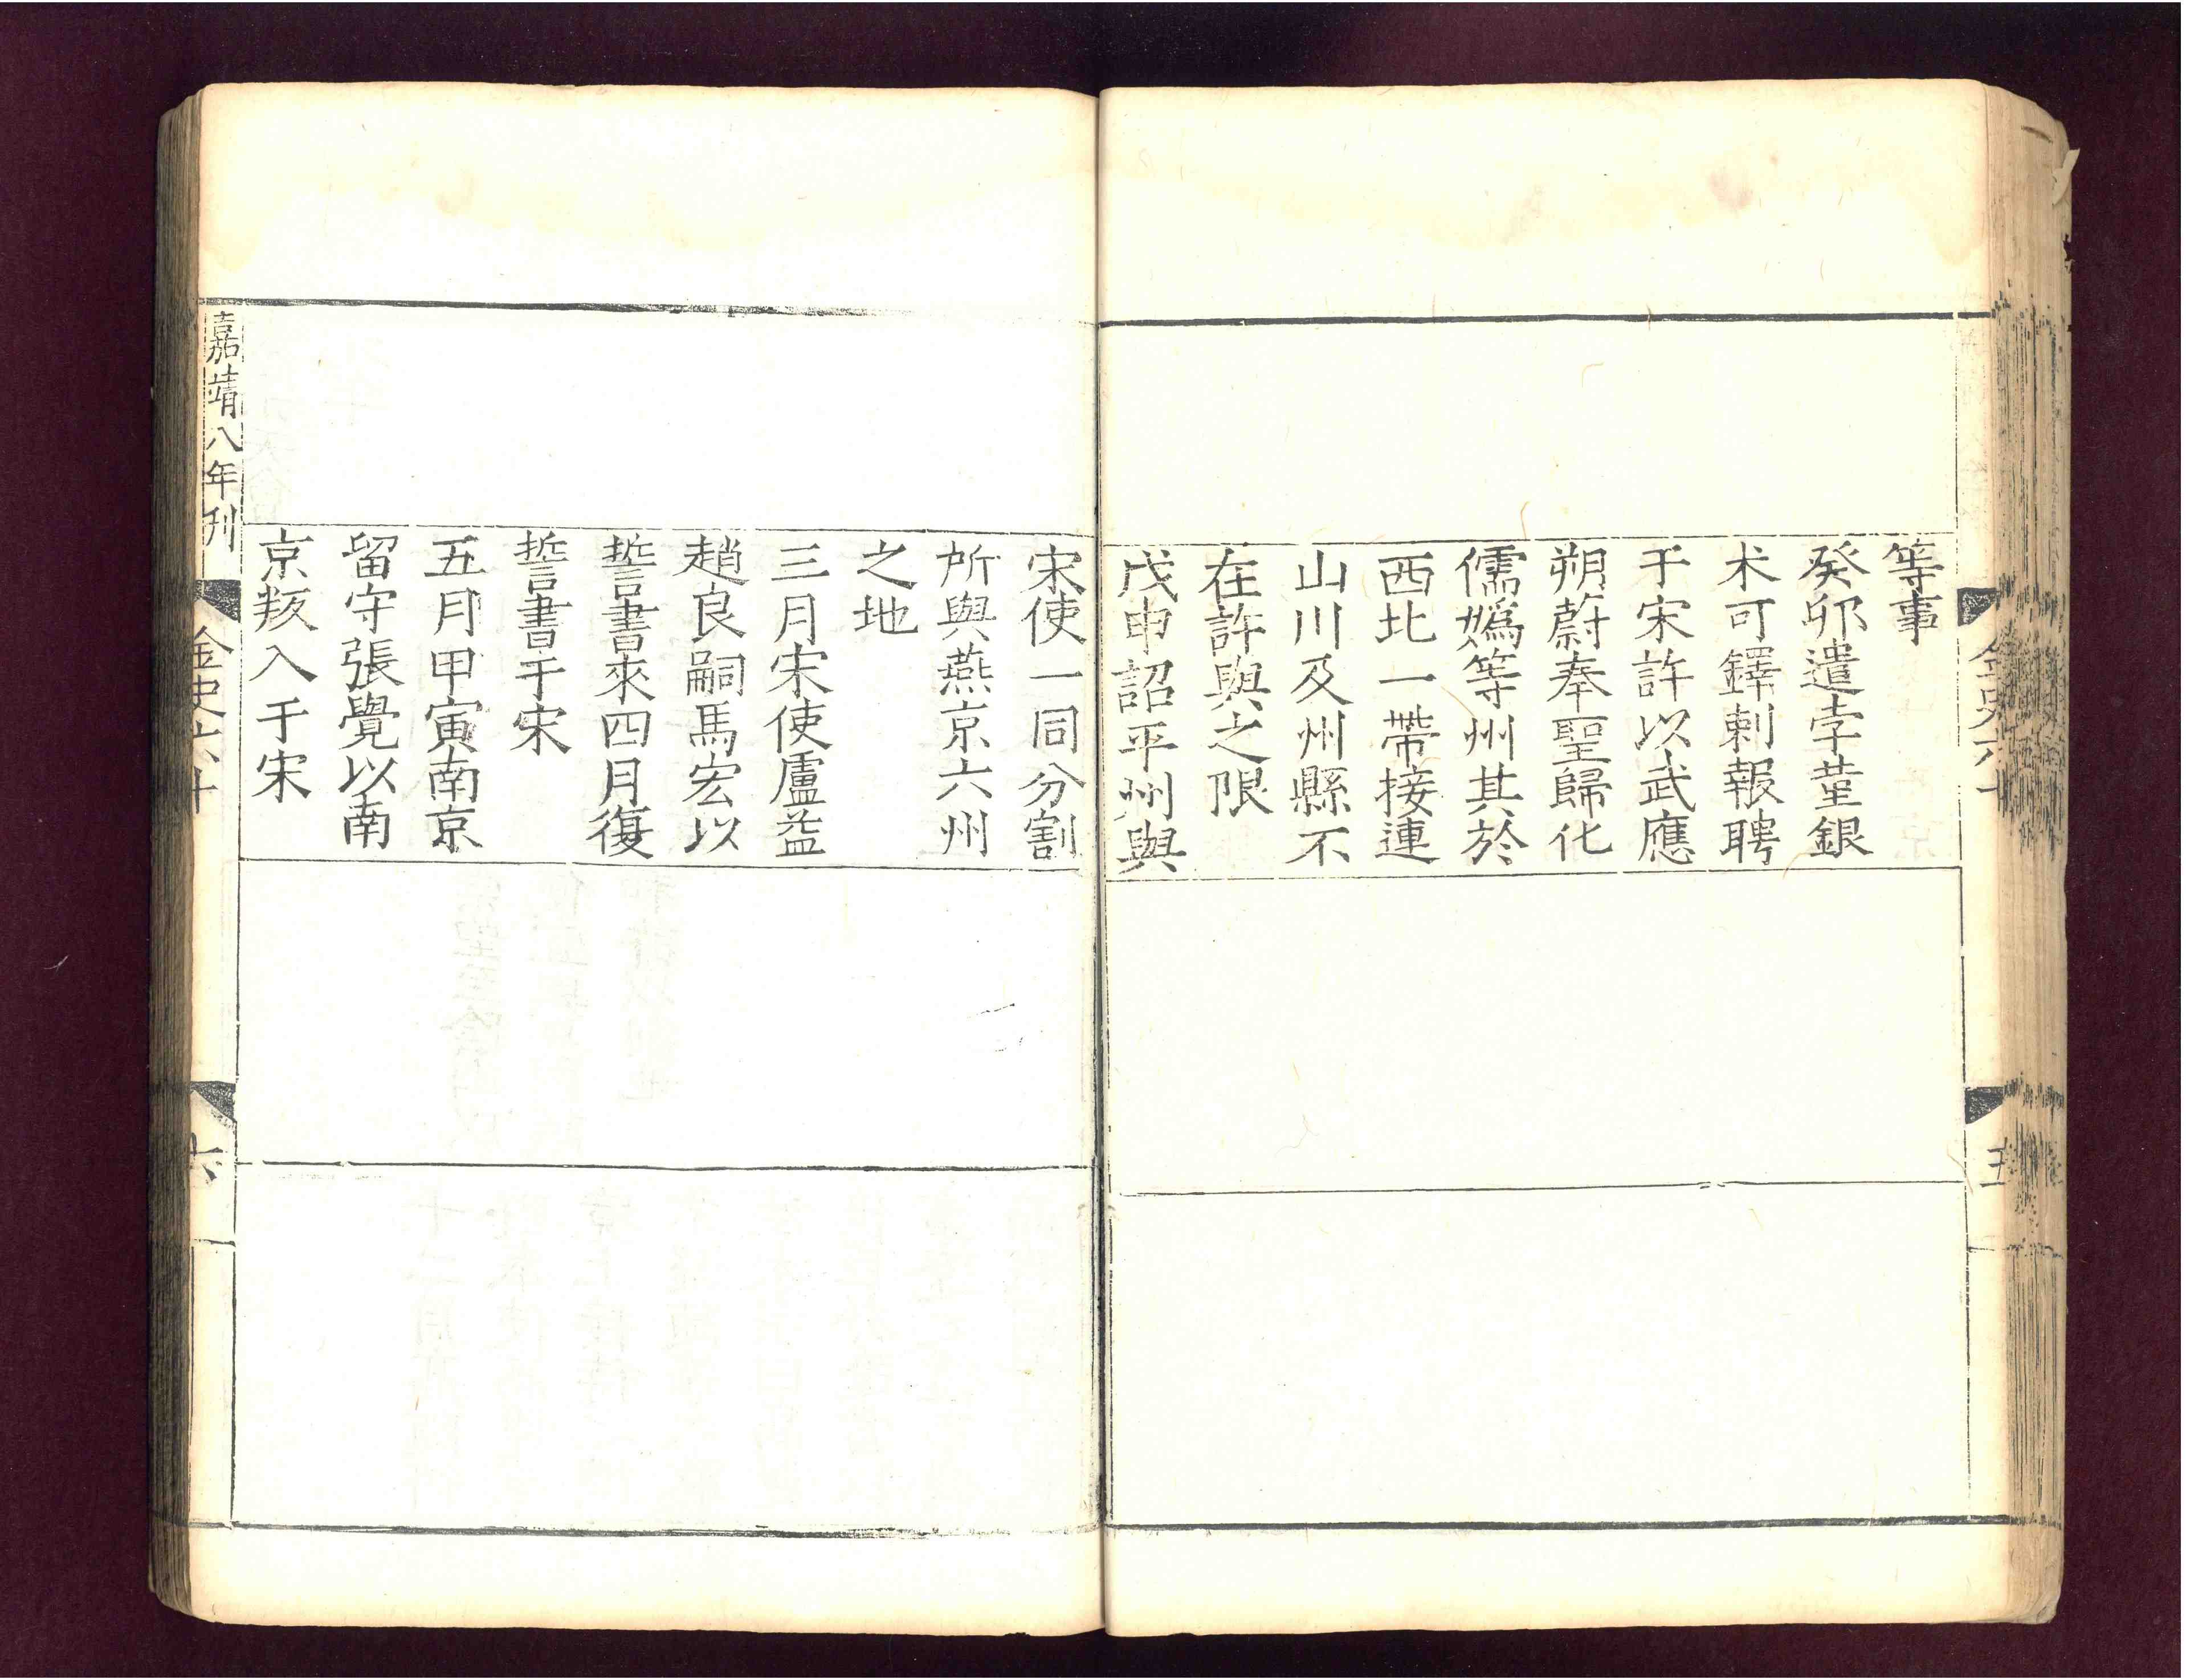 等事
癸卯遣孛菫銀
术可鐸剌報聘
于宋許以武應
朔蔚奉聖歸化
儒媯等州其於
西北一帶接連
山川及州縣不
在許與之限
戊申詔平州與
宋使一同分割
所與燕京六州
之地
三月宋使盧益
趙良嗣馬宏以
誓書來四月復
誓書于宋
五月甲寅南京
留守張覺以南
京叛入于宋
嘉靖八年刊
金史六十
六